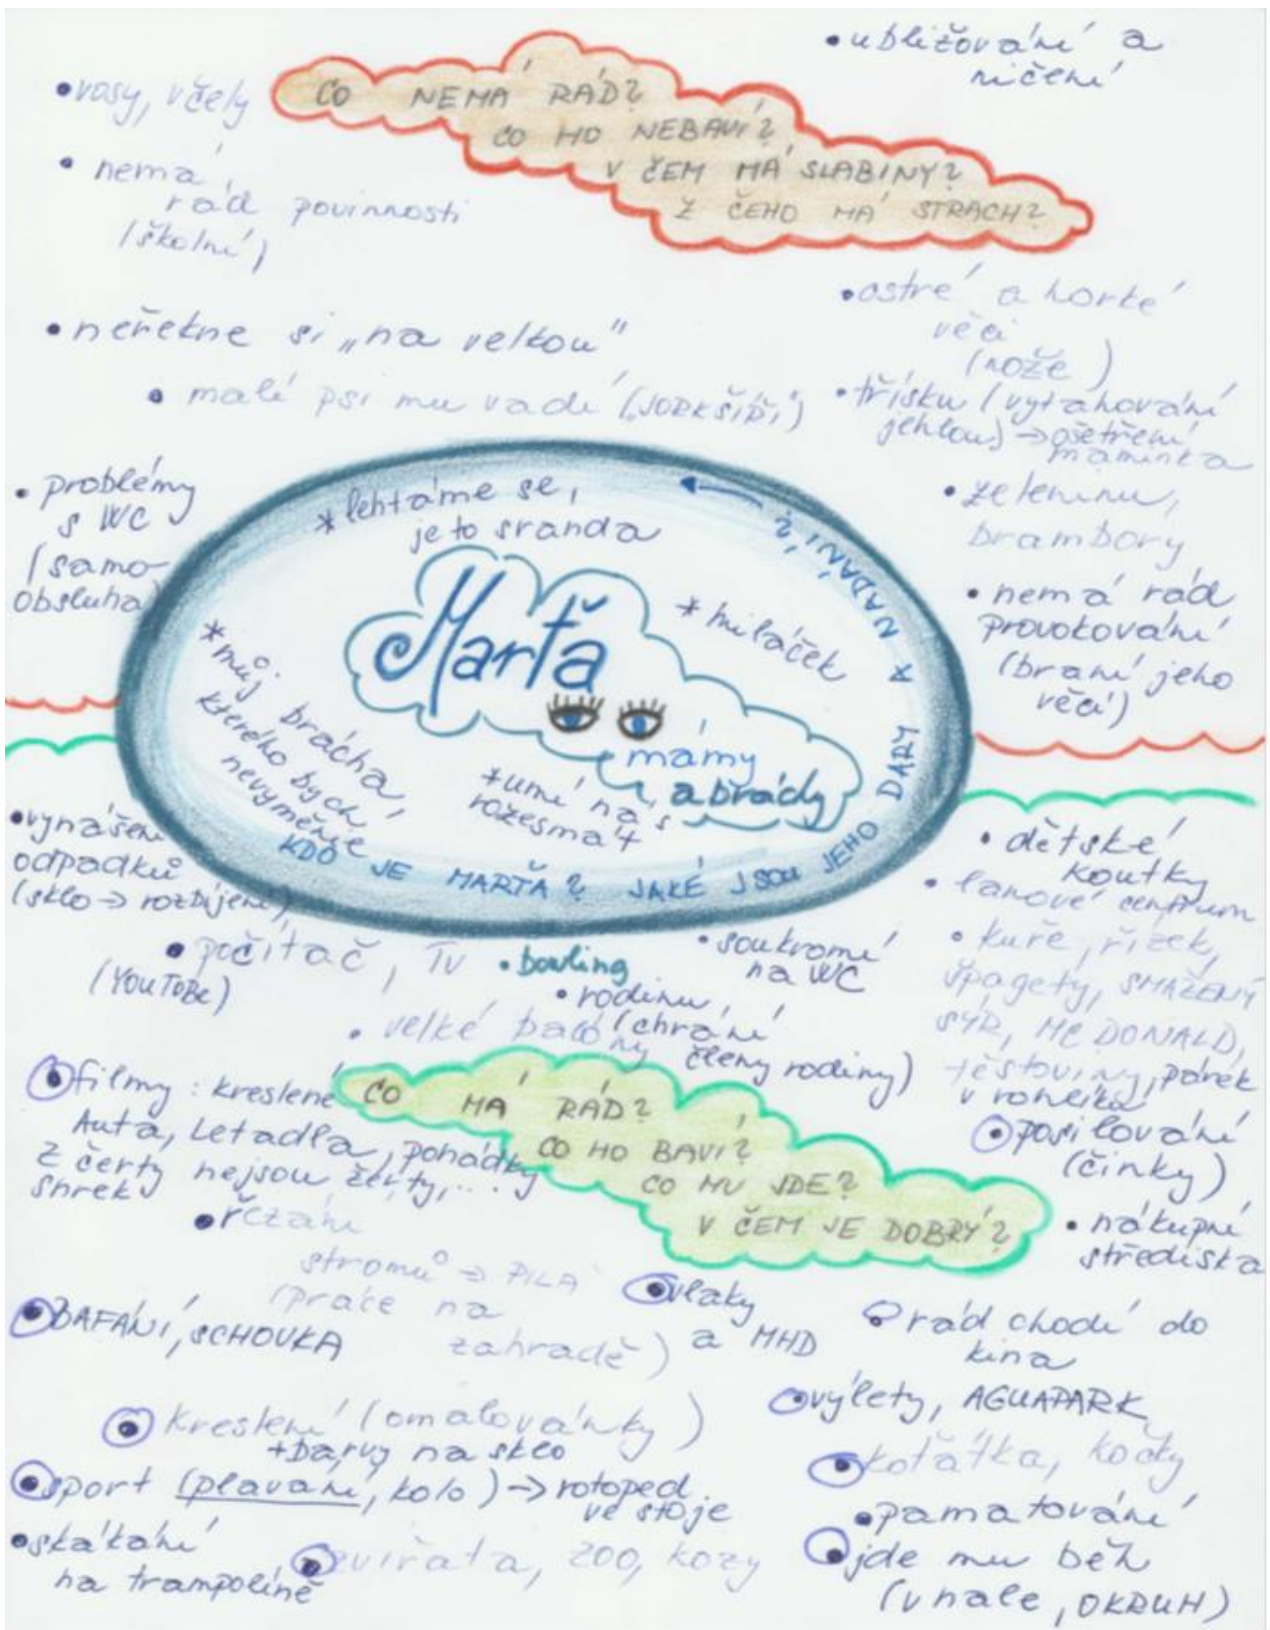 • ubližování a
ničení
• vosy, včely
CO NEMÁ RÁD?
CO HO NEBAVÍ?
V ČEM MÁ SLABINY?
Z ČEHO MÁ STRACH?
• nemá
rád povinnosti
(školní)
• neřekne si „na velkou"
• malí psi mu vadí (JORKŠÍŘI)
• ostré a horké
věci
(nože)
• třísku (vytahování
jehlou) → ošetření
maminka
• zeleninu,
brambory
• nemá rád
provokování
(braní jeho
věcí)
• problémy
s WC
(samo-
obsluha)
* lehtáme se,
je to sranda
Marťa
* miláček
* můj brácha,
kterého bych
nevyměnil
mámy
a bráchy
* umí nás
rozesmát
KDO JE MARŤA? JAKÉ JSOU JEHO DARY A NADÁNÍ?
• vynášení
odpadků
(sklo → rozbíjení)
• počítač, TV
(YOUTOBE)
• bowling
• soukromí
na WC
• rodinu,
(chrání
členy rodiny)
• velké balóny
• dětské
koutky
• lanové centrum
• kuře, řízek,
špagety, SMAŽENÝ
SÝR, MC DONALD,
těstoviny, párek
v rohlíku
• filmy: kreslené
Auta, Letadla, pohádky
Z čerty nejsou žerty, ...
Shrek
CO MÁ RÁD?
CO HO BAVÍ?
CO MU JDE?
V ČEM JE DOBRÝ?
• posilování
(činky)
• nákupní
střediska
• řezání
stromů → PILA
(práce na
zahradě)
• BAFÁNÍ, SCHOVKA
• vlaky
a MHD
• rád chodí do
kina
• výlety, AGUAPARK
• Kreslení (omalovánky)
+ barvy na sklo
• koťátka, kočky
• sport (plavání, kolo) → rotoped
ve stoje
• pamatování
• skákání
na trampolíně
• zvířata, ZOO, kozy
• jde mu běh
(v hale, OKRUH)